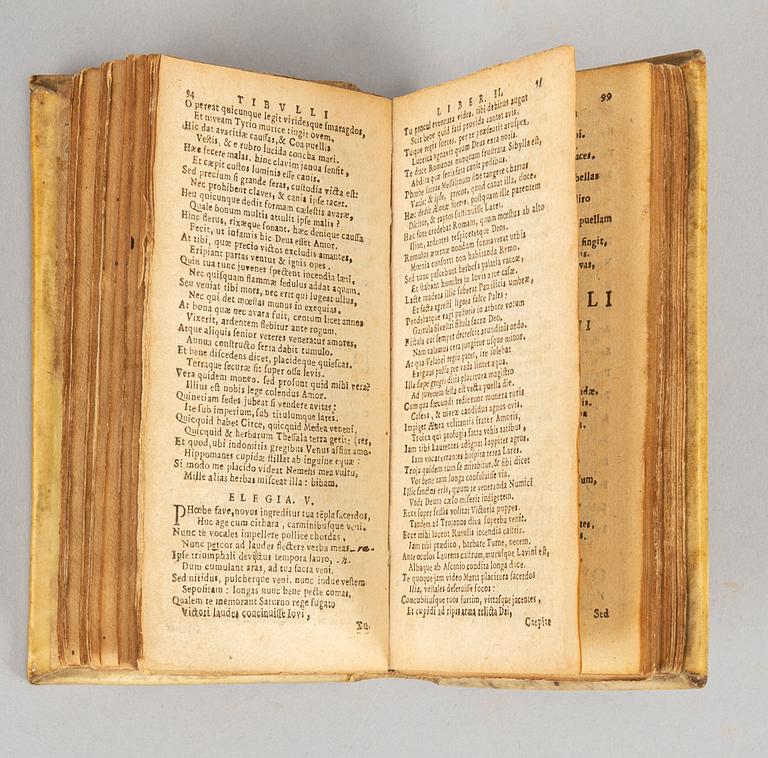 94
TIBVLLI
O pereat quicunque legit viridesque smaragdos,
Et niveam Tyrio murice tingit ovem.
Hic dat avaritiæ caussas, & Coa puellis
Vestis, & e rubro lucida concha mari.
Hæc fecere malas. hinc clavim janua sensit,
Et cœpit custos luminis esse canis.
Sed precium si grande feras, custodia victa est:
Nec prohibent claves, & canis ipse tacet.
Heu quicunque dedit formam cælestis avaræ,
Quale bonum multis attulit ipse malis?
Hinc fletus, rixæque sonant. hæc denique caussa
Fecit, ut infamis hic Deus esset Amor.
At tibi, quæ precio victos excludis amantes,
Eripiant partas ventus & ignis opes.
Quin tua tunc juvenes spectent incendia læti,
Nec quisquam flammæ sedulus addat aquam.
Seu veniat tibi mors, nec erit qui lugeat ullus,
Nec qui det mœstas munus in exequias.
At bona quæ nec avara fuit, centum licet annos
Vixerit, ardentem flebitur ante rogum.
Atque aliquis senior veteres veneratus amores,
Annua constructo serta dabit tumulo.
Et bene discedens dicet, placideque quiescas,
Terraque securæ sit super ossa levis.
Vera quidem moneo. sed prosunt quid mihi vera?
Illius est nobis lege colendus Amor.
Quinetiam sedes jubeat si vendere avitas:
Ite sub imperium, sub titulumque lares.
Quicquid habet Circe, quicquid Medea veneni,
Quicquid & herbarum Thessala terra gerit: (res,
Et quod, ubi indomitis gregibus Venus afflat amo-
Hippomanes cupidæ stillat ab inguine equæ:
Si modo me placido videat Nemesis mea vultu,
Mille alias herbas misceat illa: bibam.
ELEGIA. V.
PHœbe fave, novus ingreditur tua tẽpla sacerdos,
Huc age cum cithara, carminibusque veni.
Nunc te vocales impellere pollice chordas,
Nunc precor ad laudes flectere verba meas
Ipse triumphali devinctus tempora lauro,
Dum cumulant aras, ad tua sacra veni.
Sed nitidus, pulcherque veni. nunc indue vestem
Sepositam: longas nunc bene pecte comas,
Qualem te memorant Saturno rege fugato
Victori laudes concinuisse Iovi,
Tu
LIBER. II.
Tu procul eventura vides. tibi debitus augur
Scit bene quid fati provida cantet avis.
Tuque regis sortes. per te præsentit aruspex,
Lubrica signavit quum Deus exta notis.
Te duce Romanos nunquam frustrata Sibylla est,
Abdita quæ senis fata canit pedibus.
Phœbe sacras Messalinum sine tangere chartas
Vatis: & ipse, precor, quod canat illa, doce.
Hæc dedit Æneæ sortes, postquam ille parentem
Dicitur, & raptos sustinuisse Lares.
Nec fore credebat Romam, quum mœstus ab alto
Ilion, ardentes respiceretque Deos.
Romulus æternæ nondum formaverat urbis
Mœnia consorti non habitanda Remo.
Sed tunc pascebant herbosa palatia vaccæ,
Et stabant humiles in Iovis arce casæ.
Lacte madens illic suberat Pan ilicis umbræ,
Et facta agresti lignea falce Pales:
Pendebatque vagi pastoris in arbore votum
Garrula silvestri fistula sacra Deo,
Fistula cui semper decrescit arundinis ordo.
Nam calamus cera jungitur usque minor,
At qua Velabri regio patet, ire solebat
Exiguus pulsa per vada linter aqua.
Illa sæpe gregis ditis placitura magistro
Ad juvenem festa est vecta puella die.
Cum qua fœcundi redierunt munera ruris
Caseus, & niveæ candidus agnus ovis.
Impiger Ænea volitantis frater Amoris,
Troica qui profugis sacra vehis ratibus,
Iam tibi Laurentes adsignat Iuppiter agros,
Iam vocat errantes hospita terra Lares.
Troja quidem tum se mirabitur, & sibi dicet
Vos bene tam longa consuluisse via.
Illic sanctus eris, quum te veneranda Numici
Vnda Deum cælo miserit indigetem.
Ecce super fessas volitat Victoria puppes.
Tandem ad Trojanos diva superba venit.
Ecce mihi lucent Rutulis incendia castris.
Iam tibi prædico, barbare Turne, necem.
Ante oculos Laurens castrum, murusque Lavini est,
Albaque ab Ascanio condita longa duce.
Te quoque jam video Marti placitura sacerdos
Ilia, vestales deseruisse focos:
Concubitusque tuos furtim, vittasque jacentes,
Et cupidi ad ripas arma relicta Dei,
Carpite
99
Sed